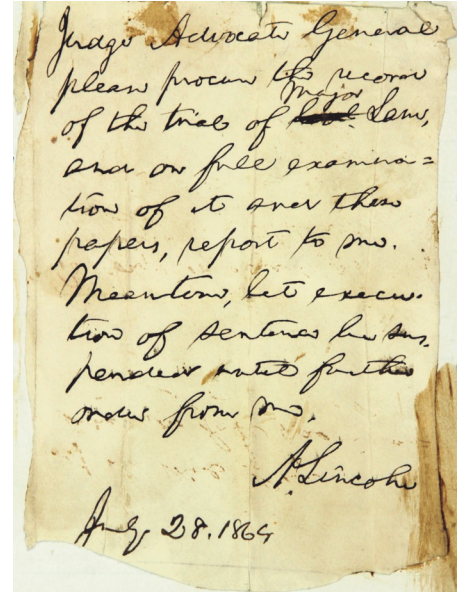 Judge Advocate General
please procure the record
of the trial of Major Laws,
and on full examina=
tion of it and these
papers, report to me.
Meantime, let execu-
tion of sentence be sus-
pended until further
order from me.
A. Lincoln
July 28. 1864